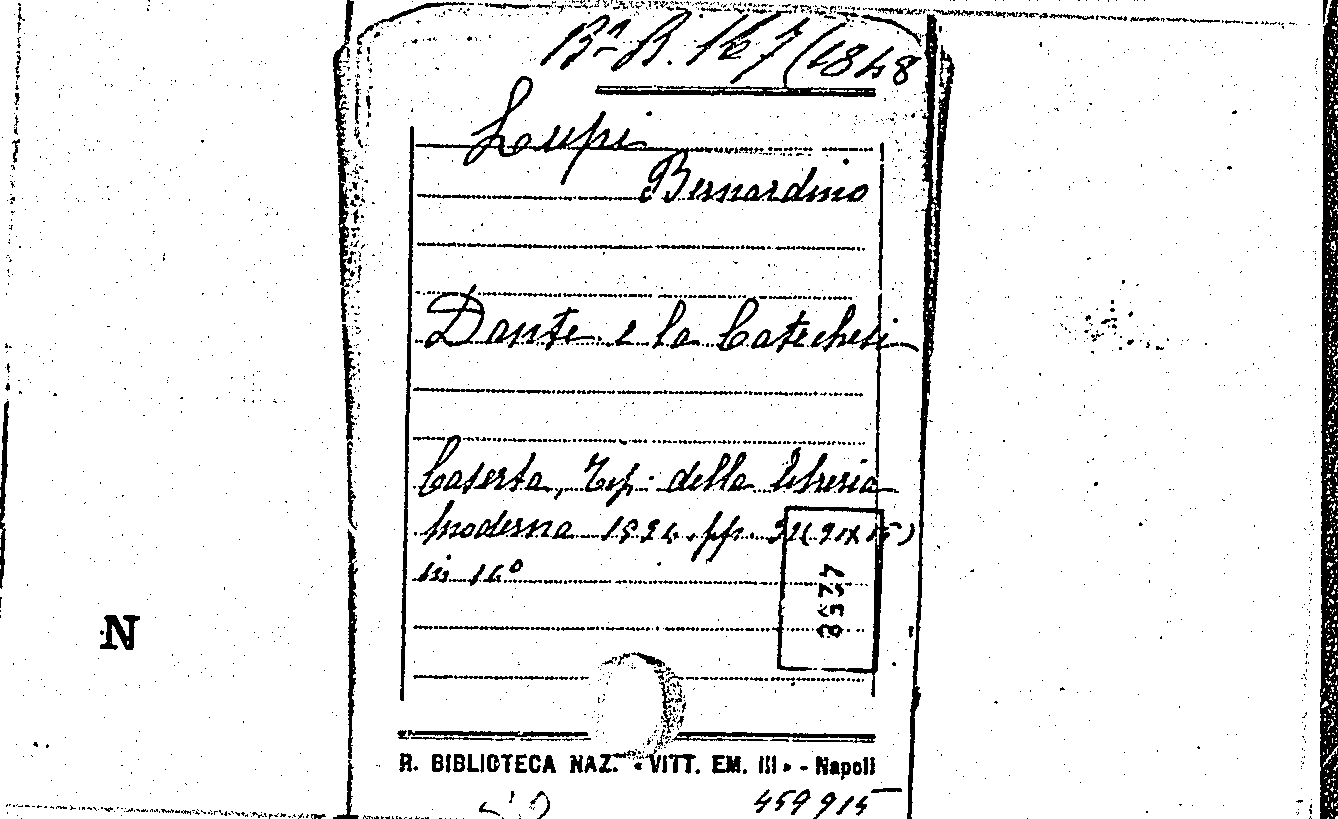 Bª B. 167 (1848
Lupi
Bernardino
Dante e la Catechesi
Caserta, Tip. della libreria
moderna 1924. pp. 32 (21x15)
in 16°
8527
N
R. BIBLIOTECA NAZ. « VITT. EM. III » - Napoli
459915